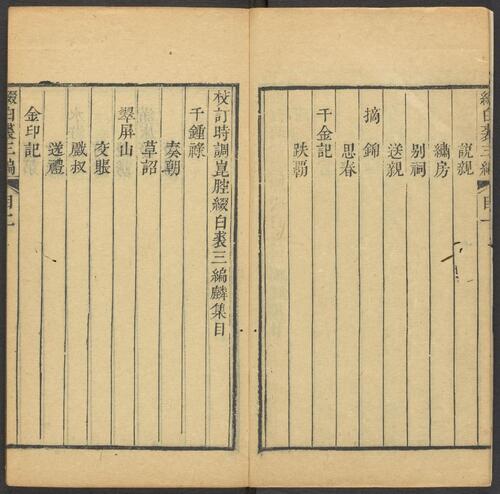 綴白裘三編 目一
說親
繡房
別祠
送親
摘錦
思春
千金記
跌覇
校訂時調崑腔綴白裘三編麟集目
千鍾祿
奏朝
草詔
翠屏山
交賬
戲叔
送禮
金印記
綴白裘三編 目二